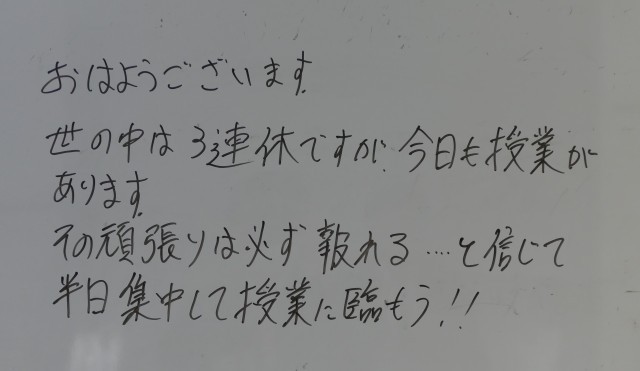 おはようございます.
世の中は3連休ですが、今日も授業が
あります.
その頑張りは必ず報れる…と信じて
半日集中して授業に臨もう!!